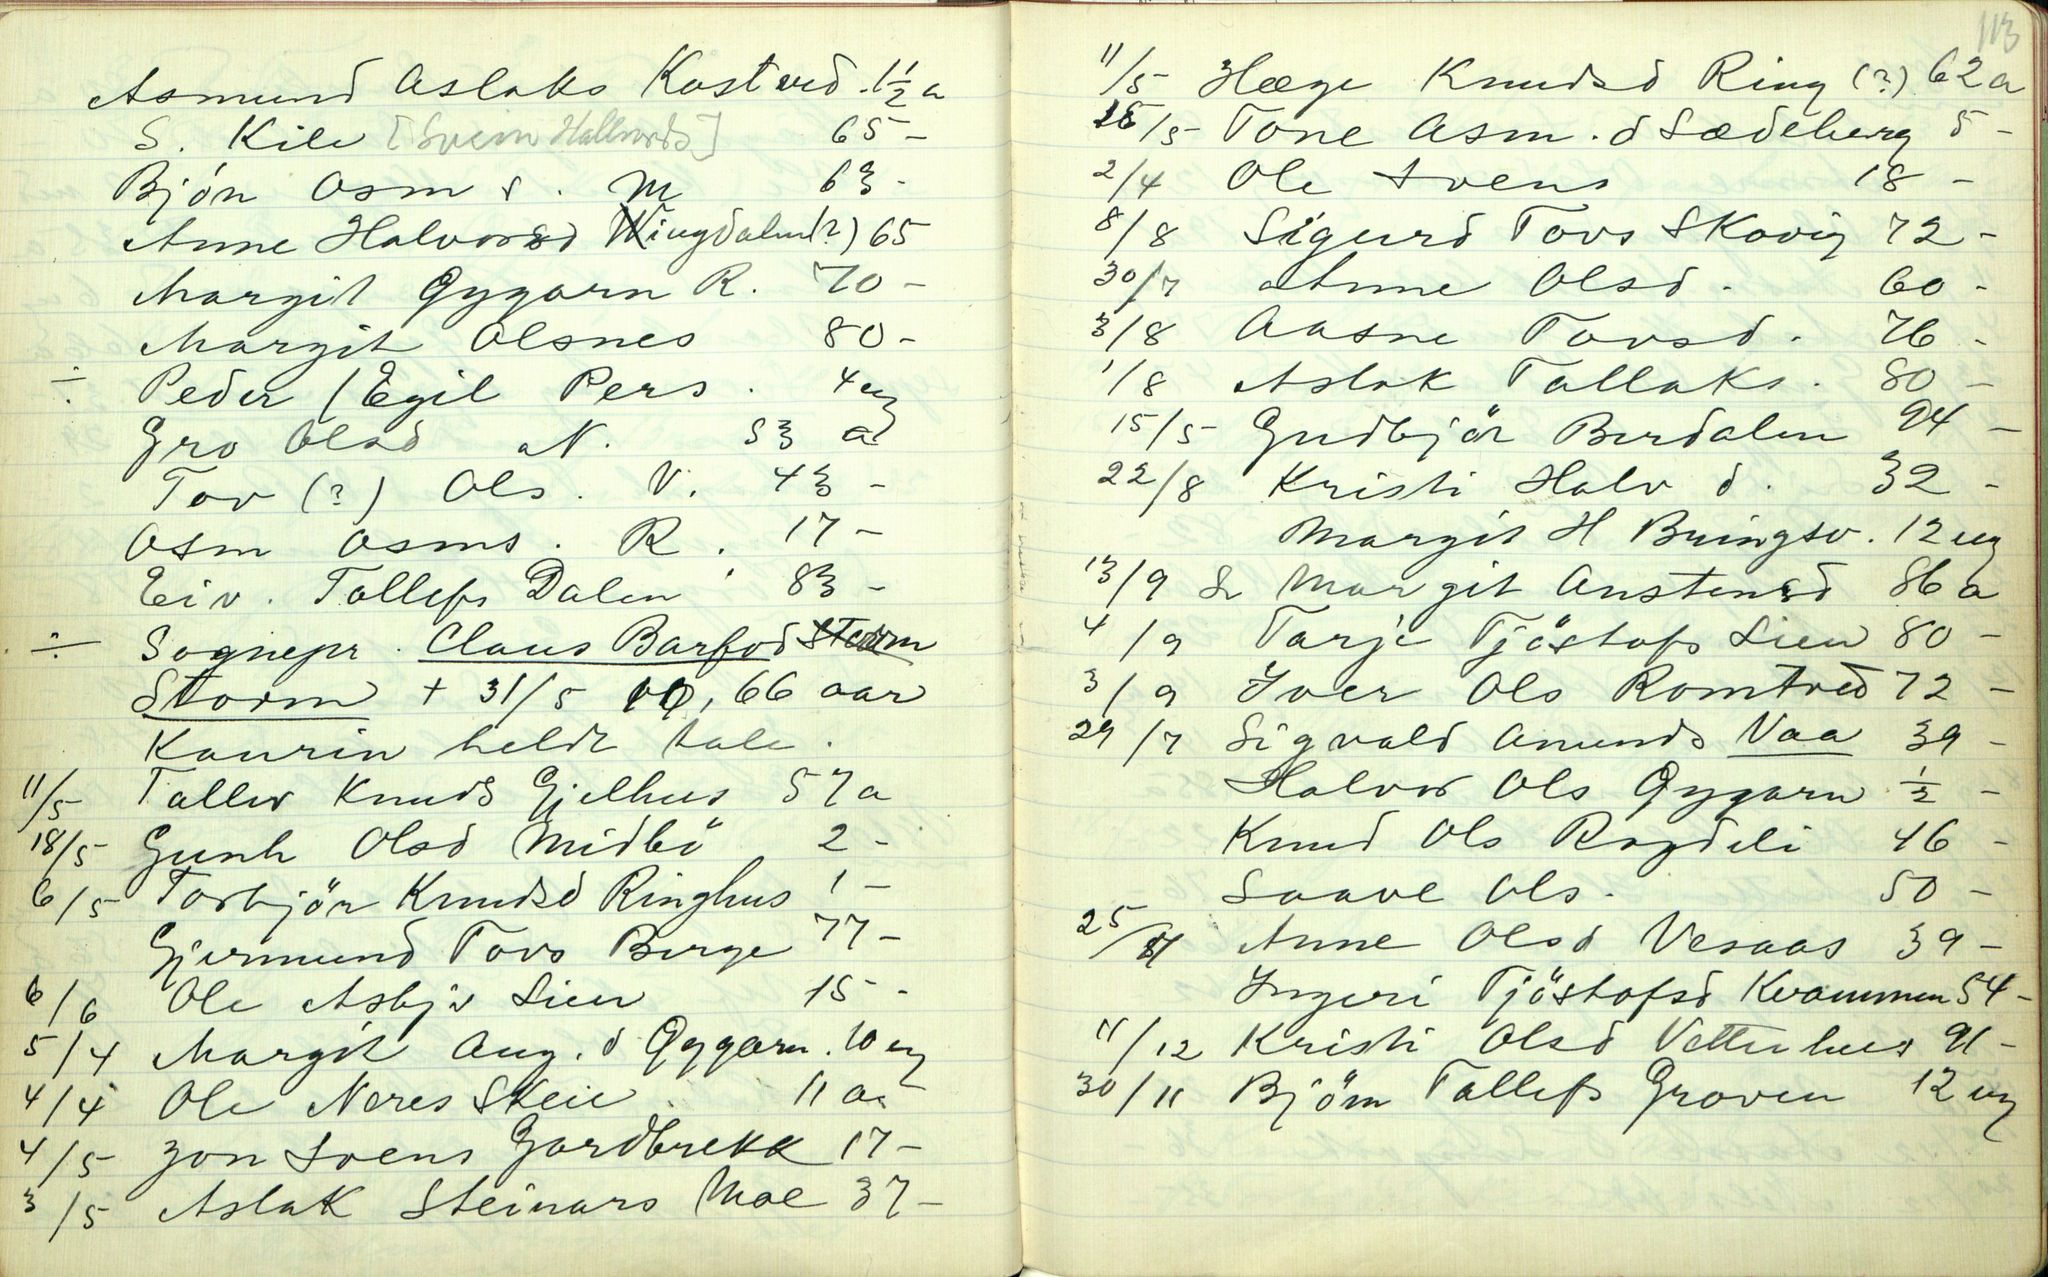 Asmund Aslaks Kostved. 1½ a
S. Kile [Svein Hallvords] 65 –
Bjön Asm s. M 63 -
Anne Halvorsd Wingdalen(?) 65
Margit Gygarn R. 70 –
Margit Olsnes 80 –
÷ Peder (Egil Pers. 4 ug
Gro Olsd N. 53 a
Tov (?) Ols. V. 43 –
Asm Asms. R. 17 –
Eiv. Tallefs Dalen 83 –
÷ Sognepr. Claus Barfod Storm
Storm + 31/5 66 aar
Kaurin heldt tale.
11/5 Tallev Knuds Gjelhus 57 a
18/5 Gunh Olsd Midbö 2 –
6/5 Torbjör Knudsd Ringhus 1 –
Gjermund Tovs Berge 77 –
6/6 Ole Asbj's Lien 15 -
5/4 Margit Aug. d Gygarn. 10 ug
4/4 Ole Neres Skeie 11 a
4/5 Jon Svens Gardbrekk 17 –
3/5 Aslak Steinars Moe 37 –
113
11/5 Hæge Knudsd Ring (?) 62 a
15/5 Tone Asm. d Sædeberg 5 –
2/4 Ole Svens 18 –
8/8 Sigurd Tovs Skovig 72 –
30/7 Anne Olsd. 60 -
3/8 Aasne Tovsd. 76 -
1/8 Aslak Tallaks. 80 –
15/5 Gudbjör Berdalen 94 –
22/8 Kristi Halv d. 32 -
Margit H Bringsv. 12 ug
13/9 Margit Austensd 86 a
4/9 Tarje Tjöstofs Lien 80 –
3/9 Iver Ols Romtved 72 –
29/7 Sigvald Amunds Vaa 39 -
Halvor Ols Gygarn ½ –
Knud Ols Ragdeli 46 -
Saave Ols. 50 –
25/11 Anne Olsd Vesaas 39 –
Ingeri Tjöstofsd Kvammen 54 –
11/12 Kristi Olsd Vetterhus 91 –
30/11 Björn Tallefs Groven 12 ug